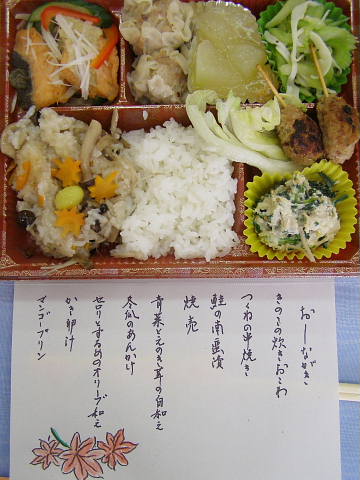 おしながき
きのこの炊きおこわ
つくねの串焼き
鮭の南蛮漬
焼売
青菜とえのき茸の白和え
冬瓜のあんかけ
セロリとするめのオリーブ和え
かき卵汁
マンゴープリン